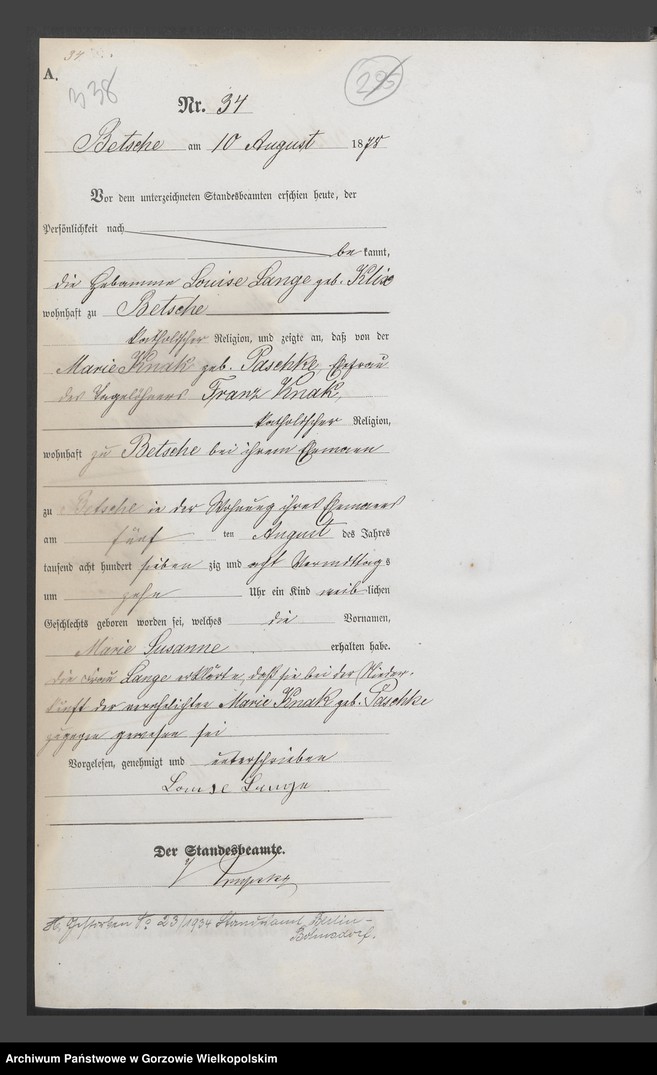 34
A.
338
295
Nr. 34
Betsche am 10 August 1878
Vor dem unterzeichneten Standesbeamten erschien heute, der
Persönlichkeit nach
be kannt,
die Hebamme Louise Lange geb. Klix
wohnhaft zu Betsche
katholischer Religion, und zeigte an, daß von der
Marie Knak geb. Paschke, Ehefrau
des Tagelöhners Franz Knak,
katholischer Religion,
wohnhaft zu Betsche bei ihrem Ehemann
zu Betsche in der Wohnung ihres Ehemanns
am fünf ten August des Jahres
tausend acht hundert sieben zig und acht Vormittags
um zehn Uhr ein Kind weib lichen
Geschlechts geboren worden sei, welches die Vornamen,
Marie Susanne erhalten habe.
Die Frau Lange erklärte, daß sie bei der Nieder-
kunft der verehelichten Marie Knak geb. Paschke
zugegen gewesen sei
Vorgelesen, genehmigt und unterschrieben
Louise Lange
Der Standesbeamte.
Gestorben No 23/1934 Standesamt Berlin-
Bohnsdorf.
Archiwum Państwowe w Gorzowie Wielkopolskim